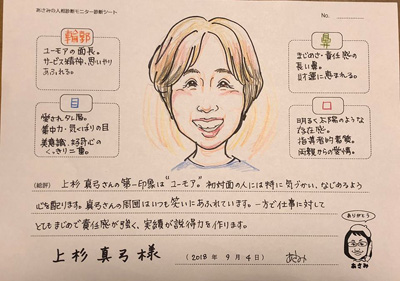 あさみの人相診断モニター診断シート
No.
輪郭
ユーモアの面長。
サービス精神、思いやり
あふれる。
目
愛されタレ眉。
集中力・気くばりの目
美意識、好奇心の
くっきり二重。
鼻
まじめさ・責任感の
長い鼻。
財運に恵まれる。
口
明るく太陽のような
存在感。
指導者的素質。
両親からの愛情。
(総評) 上杉真弓さんの第一印象は"ユーモア" 初対面の人には特に気づかい、なじめるよう
心を配ります。真弓さんの周囲はいつも笑いにあふれています。一方で仕事に対して
とてもまじめで責任感が強く、実績が説得力を作ります。
上杉 真弓 様
(2018年 9月 4日)
あさみ
ありがとう
あさみ